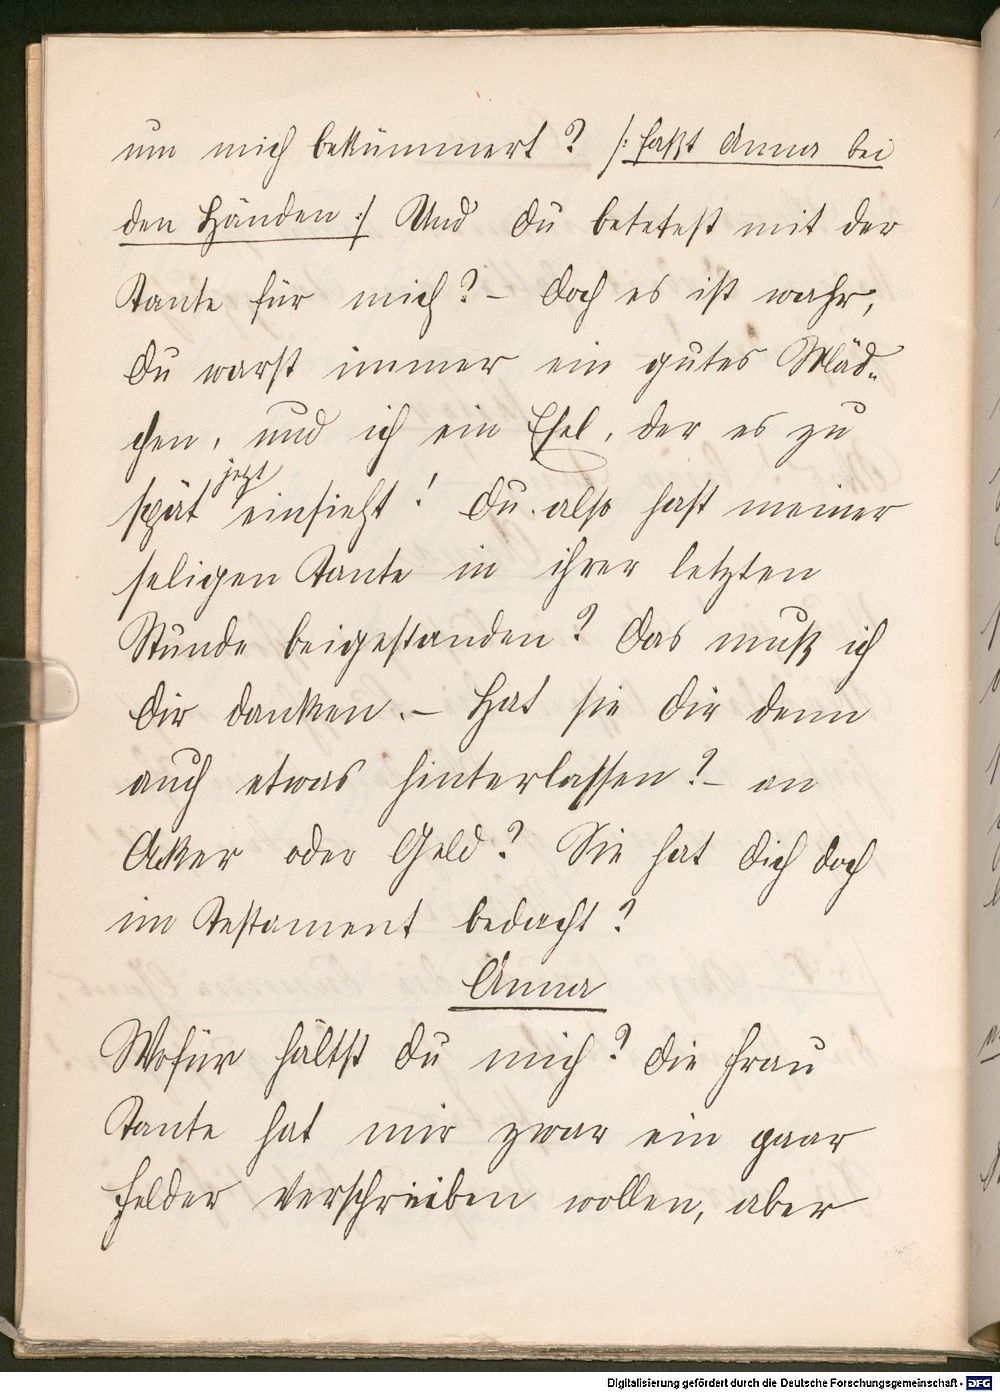 um mich bekümmert? /: faßt Anna bei
den Händen :/ Und du betetest mit der
Tante für mich? – doch es ist wahr,
du warst immer ein gutes Mäd-
chen, und ich ein Esel, der es zu
spät jetzt einsieht! Du also hast meiner
seligen Tante in ihrer letzten
Stunde beigestanden? Das muß ich
dir danken. – Hat sie dir denn
auch etwas hinterlassen? – an
Acker oder Geld? Sie hat dich doch
im Testament bedacht?
Anna
Wofür hältst du mich? Die Frau
Tante hat mir zwar ein paar
Felder verschreiben wollen, aber
Digitalisierung gefördert durch die Deutsche Forschungsgemeinschaft - DFG